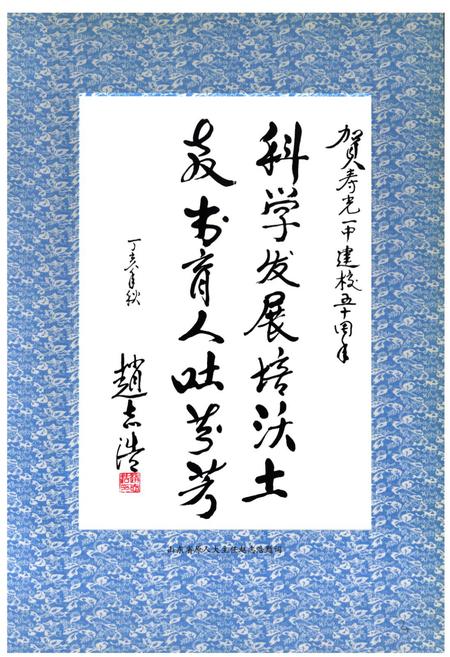 贺寿光一中建校五十周年
科学发展培沃土
教书育人吐芬芳
丁亥年秋
趙志浩
山东省原人大主任赵志浩题词